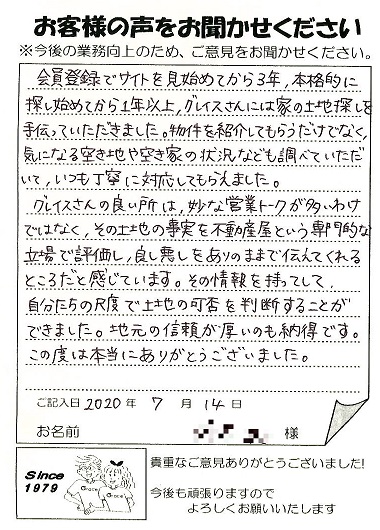 お客様の声をお聞かせください
※今後の業務向上のため、ご意見をお聞かせください。
会員登録でサイトを見始めてから3年,本格的に
探し始めてから1年以上,グレイスさんには家の土地探しを
手伝っていただきました。物件を紹介してもらうだけでなく,
気になる空き地や空き家の状況なども調べていただ
いて,いつも丁寧に対応してもらえました。
グレイスさんの良い所は,妙な営業トークが多いわけ
ではなく,その土地の事実を不動産屋という専門的な
立場で評価し,良し悪しをありのままで伝えてくれる
ところだと感じています。その情報を持ってして,
自分たちの尺度で土地の可否を判断することが
できました。地元の信頼が厚いのも納得です。
この度は本当にありがとうございました。
ご記入日 2020 年 7 月 14 日
お名前 様
Since
1979
Grace
Grace
貴重なご意見ありがとうございました!
今後も頑張りますので
よろしくお願いいたします